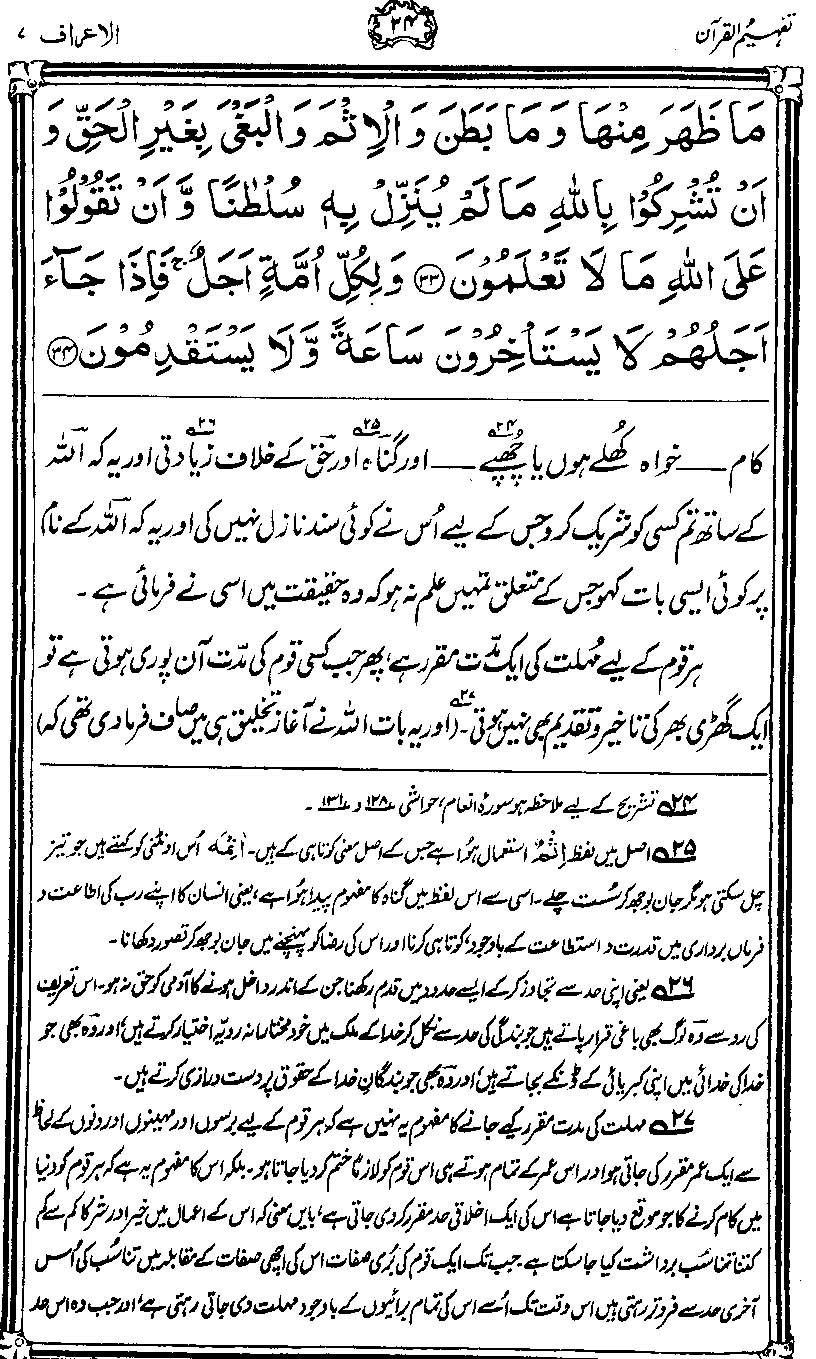 تفہیم القرآن ۲۴ الاعراف ۷
مَا ظَهَرَ مِنْهَا وَ مَا بَطَنَ وَ الْاِثْمَ وَ الْبَغْیَ بِغَیْرِ الْحَقِّ وَ
اَنْ تُشْرِكُوْا بِاللّٰهِ مَا لَمْ یُنَزِّلْ بِهٖ سُلْطٰنًا وَّ اَنْ تَقُوْلُوْا
عَلَى اللّٰهِ مَا لَا تَعْلَمُوْنَ ﴿۳۳﴾ وَ لِكُلِّ اُمَّةٍ اَجَلٌ ۚ فَاِذَا جَآءَ
اَجَلُهُمْ لَا یَسْتَاْخِرُوْنَ سَاعَةً وَّ لَا یَسْتَقْدِمُوْنَ ﴿۳۴﴾
کام ــــ خواہ کھُلے ہوں یا چھُپے ۲۴؎ ــــ اور گناہ ۲۵؎ اور حق کے خلاف زیادتی ۲۶؎ اور یہ کہ اللہ
کے ساتھ تم کسی کو شریک کرو جس کے لیے اُس نے کوئی سند نازل نہیں کی اور یہ کہ اللہ کے نام
پر کوئی ایسی بات کہو جس کے متعلق تمہیں علم نہ ہو کہ وہ حقیقت میں اسی نے فرمائی ہے۔
ہر قوم کے لیے مُہلت کی ایک مدّت مقرر ہے، پھر جب کسی قوم کی مدّت آن پوری ہوتی ہے تو
ایک گھڑی بھر کی تاخیر و تقدیم بھی نہیں ہوتی۔ ۲۷؎ (اور یہ بات اللہ نے آغاز تخلیق ہی میں صاف فرما دی تھی کہ)
۲۴؎ تشریح کے لیے ملاحظہ ہو سورۂ انعام، حواشی ۱۲۸ و ۱۳۱۔
۲۵؎ اصل میں لفظ اِثْمٌ استعمال ہُوا ہے جس کے اصل معنی کوتاہی کے ہیں۔ اٰثِمَہ اُس اونٹنی کو کہتے ہیں جو تیز
چل سکتی ہو مگر جان بوجھ کر سُست چلے۔ اسی سے اس لفظ میں گناہ کا مفہوم پیدا ہُوا ہے، یعنی انسان کا اپنے رب کی اطاعت و
فرماں برداری میں قدرت و استطاعت کے باوجود، کوتاہی کرنا اور اس کی رضا کو پہنچنے میں جان بوجھ کر قصور دکھانا۔
۲۶؎ یعنی اپنی حد سے تجاوز کر کے ایسے حدود میں قدم رکھنا جن کے اندر داخل ہونے کا آدمی کو حق نہ ہو۔ اس تعریف
کی رو سے وہ لوگ بھی باغی قرار پاتے ہیں جو بندگی کی حد سے نکل کر خدا کے ملک میں خود مختارانہ رویّہ اختیار کرتے ہیں، اور وہ بھی جو
خدا کی خدائی میں اپنی کبریائی کے ڈنکے بجاتے ہیں، اور وہ بھی جو بندگانِ خدا کے حقوق پر دست درازی کرتے ہیں۔
۲۷؎ مہلت کی مدت مقرر کیے جانے کا مفہوم یہ نہیں ہے کہ ہر قوم کے لیے برسوں اور مہینوں اور دنوں کے لحاظ
سے ایک عمر مقرر کی جاتی ہو اور اس عمر کے تمام ہوتے ہی اس قوم کو لازمًا ختم کر دیا جاتا ہو۔ بلکہ اس کا مفہوم یہ ہے کہ ہر قوم کو دنیا
میں کام کرنے کا جو موقع دیا جاتا ہے اس کی ایک اخلاقی حد مقرر کر دی جاتی ہے، بایں معنی کہ اس کے اعمال میں خیر اور شر کا کم سے کم
کتنا تناسُب برداشت کیا جا سکتا ہے۔ جب تک ایک قوم کی بُری صفات اس کی اچھی صفات کے مقابلہ میں تناسُب کی اُس
آخری حد سے فروتر رہتی ہیں اس وقت تک اُسے اس کی تمام برائیوں کے باوجود مہلت دی جاتی رہتی ہے، اور جب وہ اس حد